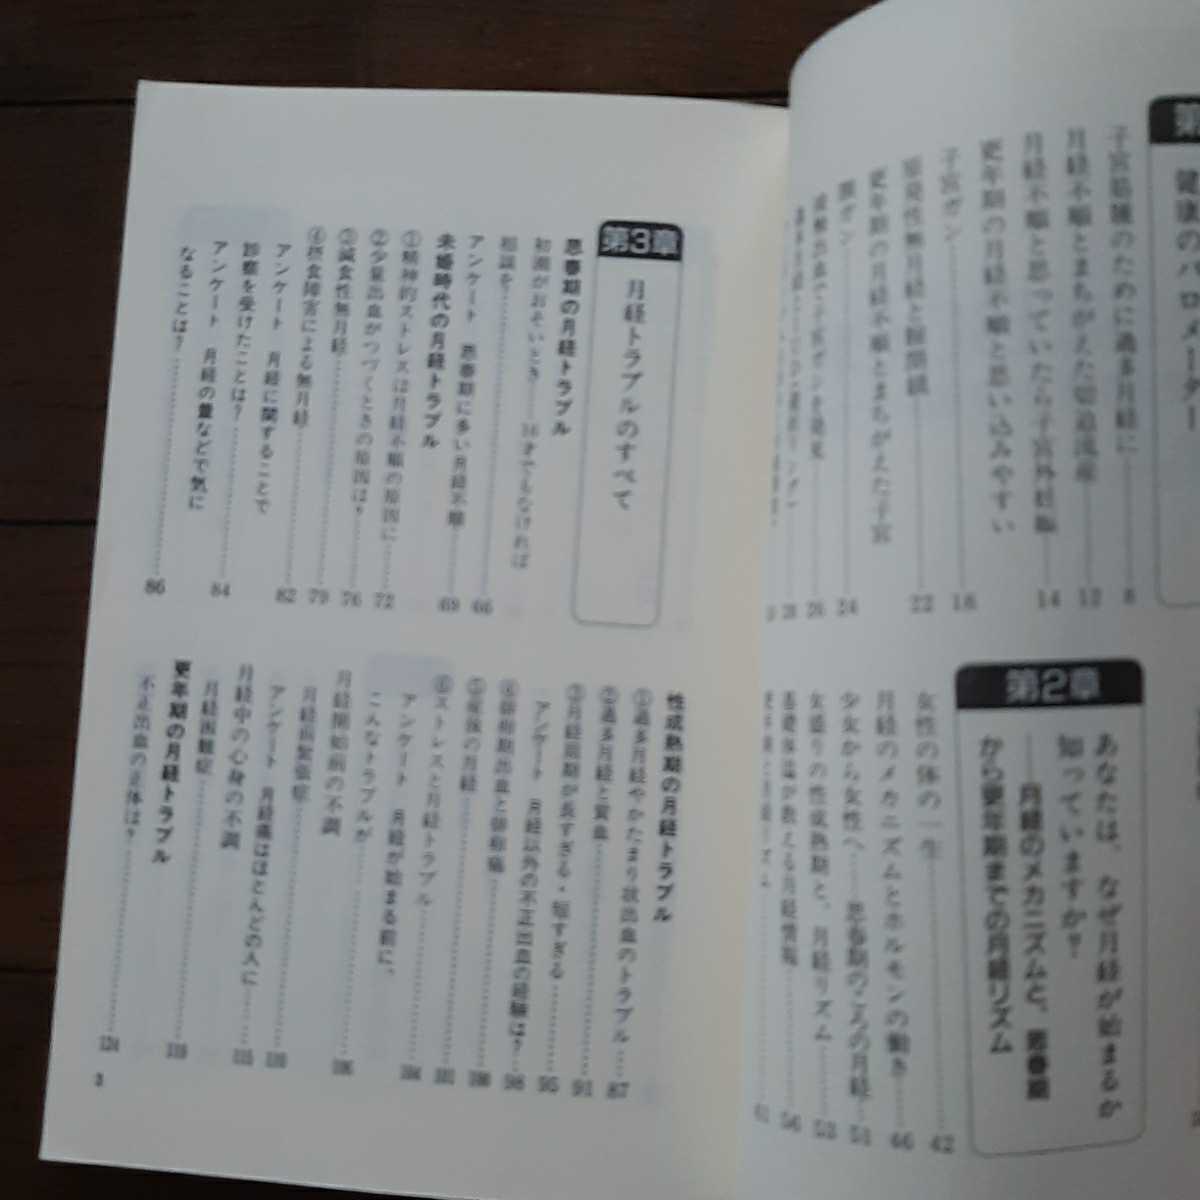 健康のバロメーター
子宮筋腫のために過多月経に……8
月経不順とまちがえた切迫流産……12
月経不順と思っていたら子宮外妊娠……14
更年期の月経不順と思い込みやすい
子宮ガン……18
原発性無月経と鎖陰……22
更年期の月経不順とまちがえた子宮
頸ガン……24
第2章
あなたは、なぜ月経が始まるか
知っていますか?
——月経のメカニズムと、思春期
から更年期までの月経リズム
女性の体の一生……42
月経のメカニズムとホルモンの働き……46
少女から女性へ……思春期のころの月経……51
女盛りの性成熟期と、月経リズム……53
基礎体温が教える月経情報……56
第3章
月経トラブルのすべて
思春期の月経トラブル
初潮がおそいとき——16才でもなければ
相談を……66
アンケート 思春期に多い月経不順……69
未婚時代の月経トラブル
①精神的ストレスは月経不順の原因に……72
②少量出血がつづくときの原因は?……76
③減食性無月経……79
④摂食障害による無月経……82
アンケート 月経に関することで
診察を受けたことは?……84
アンケート 月経の量などで気に
なることは?……86
性成熟期の月経トラブル
①過多月経やかたまり状出血のトラブル……87
②過多月経と貧血……91
③月経周期が長すぎる・短すぎる……95
アンケート 月経以外の不正出血の経験は?……98
④排卵期出血と排卵痛……100
⑤産後の月経……101
⑥ストレスと月経トラブル……104
アンケート 月経が始まる前に、
こんなトラブルが……106
月経開始前の不調
月経前緊張症……110
アンケート 月経痛はほとんどの人に……115
月経中の心身の不調
月経困難症……119
更年期の月経トラブル
不正出血の正体は?……124
3